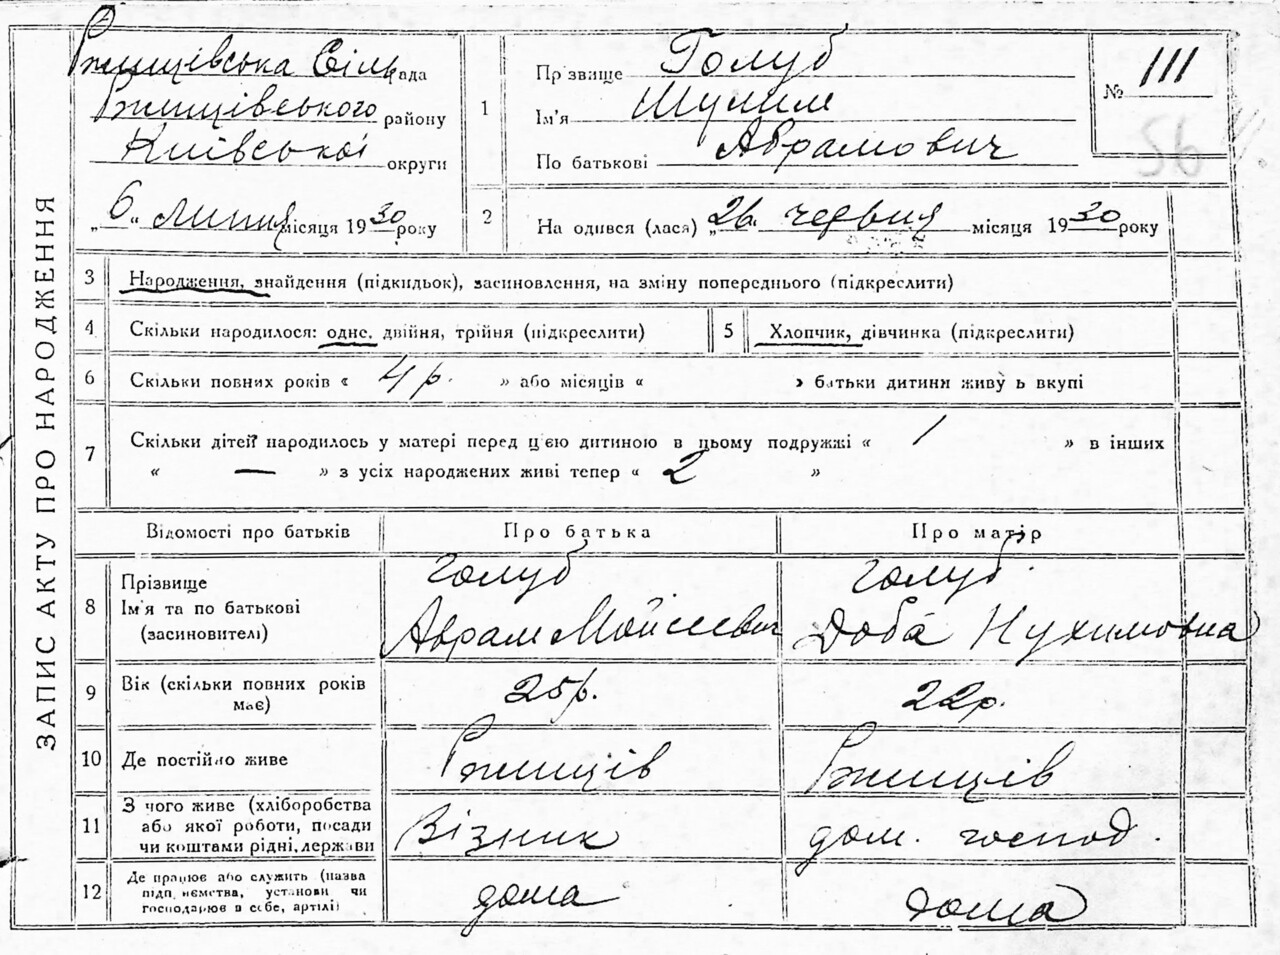 ЗАПИС АКТУ ПРО НАРОДЖЕННЯ
Ржищівська Сільрада
Ржищівського району
Київської округи
„6“ липня місяця 1930 року
1
Пр звище Голуб
Ім'я Шулим
По батькові Абрамович
№ 111
56
2
На одився (лася) „26“ червня місяця 1930 року
3 Народження, знайдення (підкидьок), засиновлення, на зміну попереднього (підкреслити)
4 Скільки народилося: одне, двійня, трійня (підкреслити)
5 Хлопчик, дівчинка (підкреслити)
6 Скільки повних років « 4 р. » або місяців « » батьки дитини живу ь вкупі
7 Скільки дітей народилось у матері перед цією дитиною в цьому подружжі « 1 » в інших
« — » з усіх народжених живі тепер « 2 »
Відомості про батьків Про батька Про матір
8 Прізвище Голуб Голуб
Ім'я та по батькові Аврам Мойсеевич Доба Нухимовна
(засиновителі)
9 Вік (скільки повних років 25р. 22р.
має)
10 Де постійно живе Ржищів Ржищів
11 З чого живе (хліборобства
або якої роботи, посади Візник дом. господ.
чи коштами рідні, держави
12 Де працює або служить (назва
підп иємства, установи чи дома дома
господарює в себе, артілі)